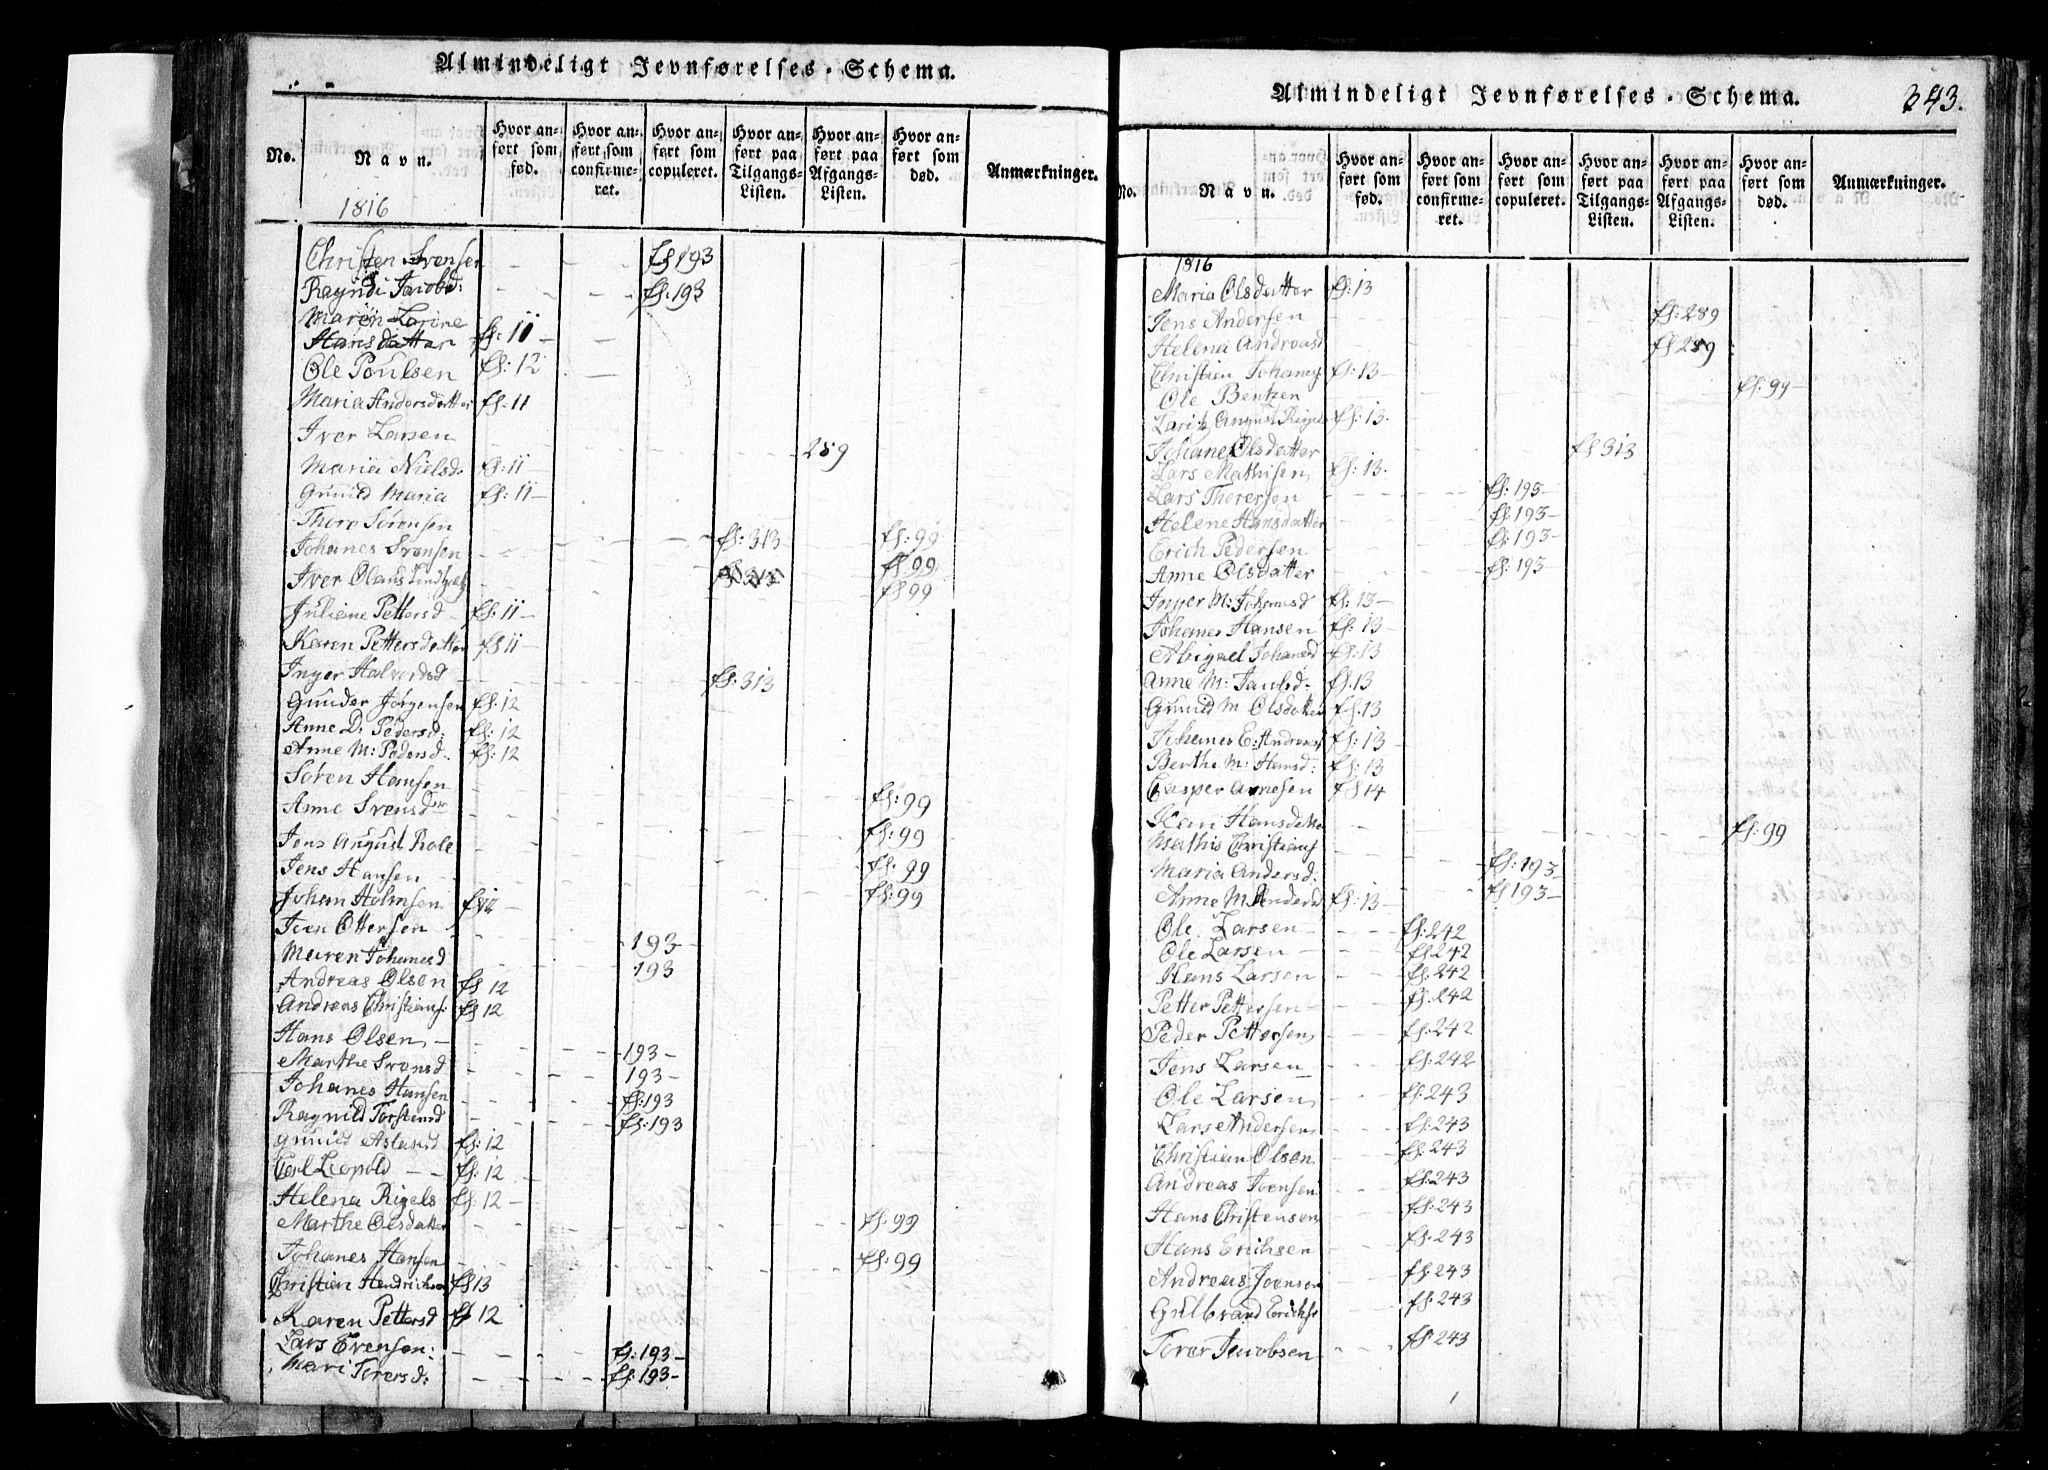 Almindeligt Jevnførelses-Schema.
No. Navn. Hvor anført som fød. Hvor anført som confirmeret. Hvor anført som copuleret. Hvor anført paa Tilgangs-Listen. Hvor anført paa Afgangs-Listen. Hvor anført som død. Anmærkninger.
1816
Christen Svensen fS 193
Ragndi Jacobd: fS: 193
Maren Larine
Hansdatter fS: 11
Ole Poulsen fS: 12
Maria Andersdatter fS: 11
Iver Larsen 289
Maria Nielsd. fS: 11
Gunild Maria fS: 11
Thore Sörensen fS: 313 fS: 99
Johanes Svensen fS 99
Iver Olaus fS 99
Juliene Pettersd fS: 11
Karen Pettersdatter fS 11
Inger Halvordsd fS: 313
Gunder Jörgensen fS: 12
Anne D. Pedersd: fS: 12
Anne M: Pedersd. fS: 12
Sören Hansen fS: 99
Anne Svensdtr fS: 99
Jens August Role fS: 99
Jens Hansen fS: 99
Johan Holmsen
Iver Ottersen 193
Maren Johanesd 193
Andreas Olsen fS 12
Andreas Christians: fS 12
Hans Olsen 193
Marthe Svensd 193
Johanes Hansen fS: 193
Ragnild Torstensd fS: 193
Gunild Aslaksd fS: 12
Carl Leopold fS: 12
Helena Rigels fS: 12
Marthe Olsdatter fS: 99
Johanes Hansen fS: 99
Christien Hendriksen fS 13
Karen Pettersd fS 12
Lars Evensen: fS: 193
Mari Torersd: fS: 193
Almindeligt Jevnførelses-Schema. 343.
No. Navn. Hvor anført som fød. Hvor anført som confirmeret. Hvor anført som copuleret. Hvor anført paa Tilgangs-Listen. Hvor anført paa Afgangs-Listen. Hvor anført som død. Anmærkninger.
1816
Maria Olsdatter fS: 13
Jens Andersen fS: 289
Helena Andreasd fS 289
Christien Johans fS: 13
Ole Bentzen fS: 99
August fS: 13.
Johane Olsdatter fS 313
Lars Mathisen fS: 13.
Lars Thoresen fS: 193
Helene Hansdatter fS: 193
Erich Pedersen fS: 193
Anne Olsdatter fS: 193
Inger M: Johanesd fS: 13
Johanes Hansen fS: 13
Abigael Johanesd fS: 13
Anne M: Paulsd. fS: 13
Gunild M Olsdatter fS: 13
Johanes E: Andreas fS: 13
Berthe M: Hansd: fS: 13
Casper Arnesen fS 14
Kari Hansdatter fS: 99
Mathis Christians fS: 193
Maria Andersd: fS 193
Anne M Andersd fS: 13
Ole Larsen fS: 242
Ole Larsen fS: 242
Hans Larsen fS: 242
Petter Pettersen fS: 242
Peder Pettersen fS: 242
Jens Larsen fS: 242
Ole Larsen fS: 243
Lars Andersen fS: 243
Christien Olsen fS: 243
Andreas Joensen fS: 243
Hans Christensen fS: 243
Hans Erichsen fS: 243
Andreas Joensen fS: 243
Gulbrand Erichs fS: 243
Torer Jacobsen fS: 243